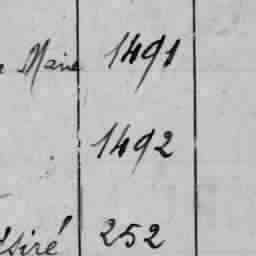 Marie 1491
1492
252